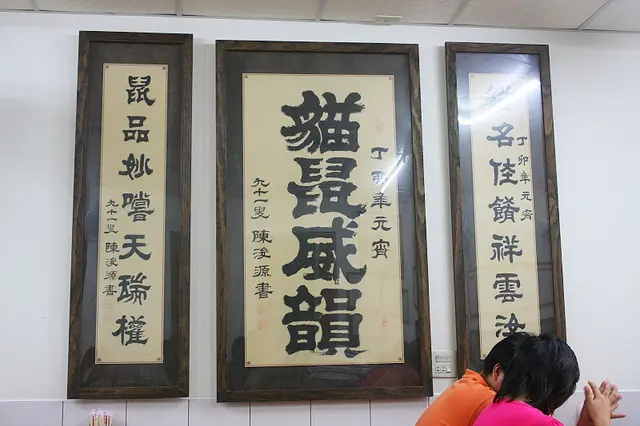 丁卯年元宵
貓名佳餚祥雲
丁卯年元宵
貓鼠威韻
九十一叟 陳浚源書
鼠品妙嚐天瑞權
九十一叟 陳浚源書